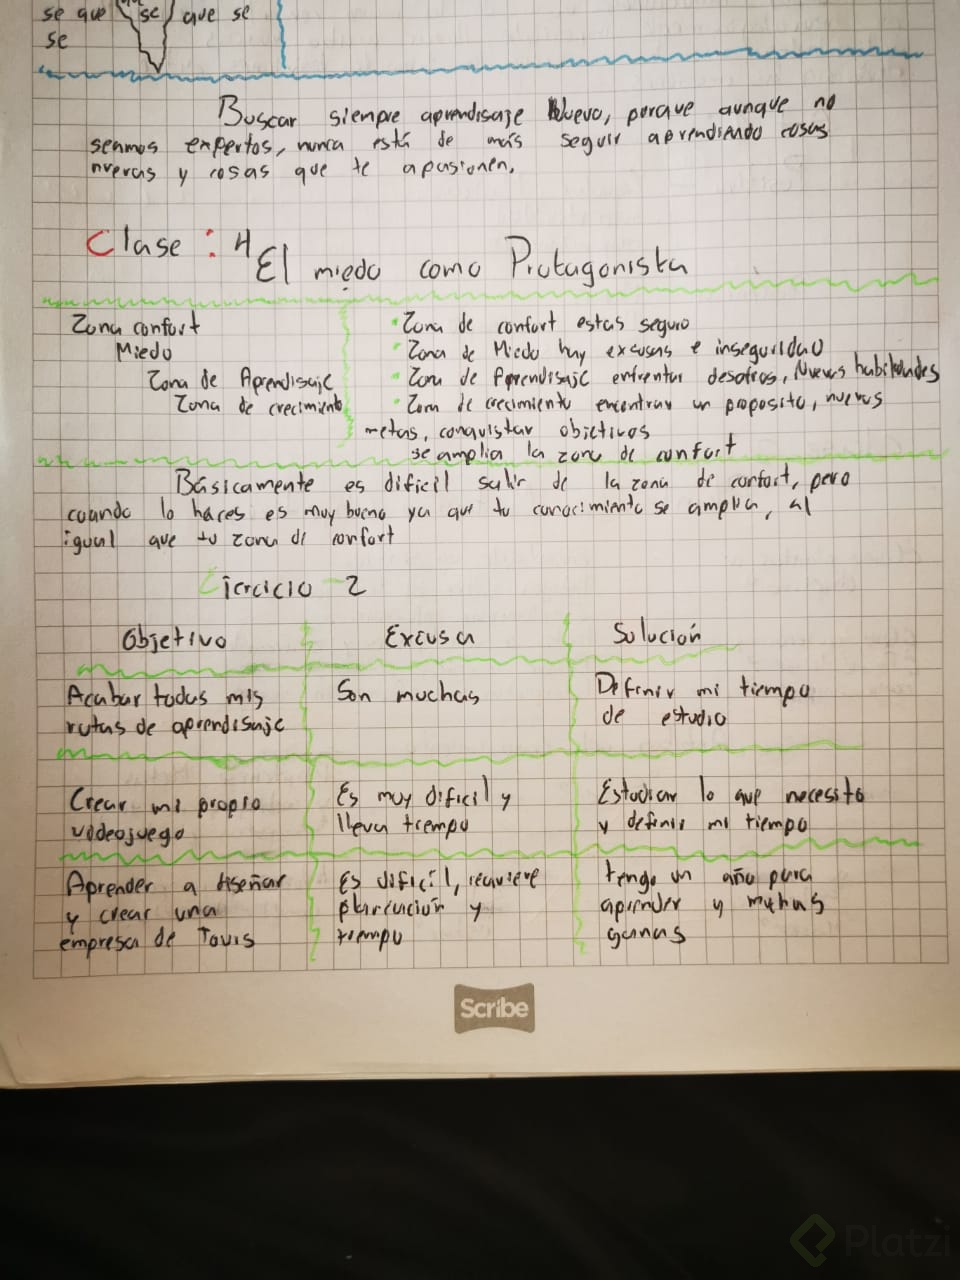 se que se que se
se
Buscar siempre aprendisaje Nuevo, porque aunque no
seamos expertos, nunca está de más seguir aprendiendo cosas
nuevas y cosas que te apasionen.
Clase : 4 El miedo como Protagonista
Zona confort
Miedo
Zona de Aprendisaje
Zona de crecimiento
• Zona de confort estas seguro
• Zona de Miedo hay excusas e inseguridad
• Zona de Aprendisaje enfrentar desafios, Nuevas habilidades
• Zona de crecimiento encontrar un proposito, nuevas
metas, conquistar objetivos
se amplia la zona de confort
Básicamente es dificil salir de la zona de confort, pero
cuando lo haces es muy bueno ya que tu conocimiento se amplia, al
igual que tu zona de confort
Ejercicio - 2
Objetivo Excusa Solución
Acabar todas mis
rutas de aprendisaje
Son muchas
Definir mi tiempo
de estudio
Crear mi propio
videojuego
Es muy dificil y
lleva tiempo
Estudiar lo que necesito
y definir mi tiempo
Aprender a diseñar
y crear una
empresa de Tours
Es dificil, requiere
y
tiempo
tengo un año para
aprender y muchas
ganas
Scribe
Platzi